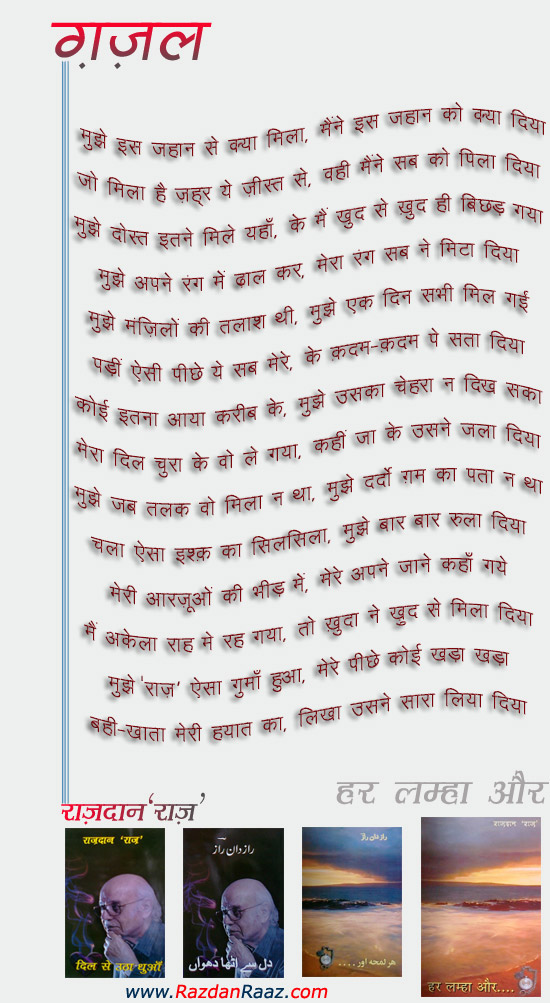 ग़ज़ल
मुझे इस जहान से क्या मिला, मैंने इस जहान को क्या दिया
जो मिला है ज़ह्र ये ज़ीस्त से, वही मैंने सब को पिला दिया
मुझे दोस्त इतने मिले यहाँ, के मैं खुद से ख़ुद ही बिछड़ गया
मुझे अपने रंग में ढाल कर, मेरा रंग सब ने मिटा दिया
मुझे मंज़िलों की तलाश थी, मुझे एक दिन सभी मिल गई
पड़ीं ऐसी पीछे ये सब मेरे, के क़दम-क़दम पे सता दिया
कोई इतना आया करीब के, मुझे उसका चेहरा न दिख सका
मेरा दिल चुरा के वो ले गया, कहीं जा के उसने जला दिया
मुझे जब तलक वो मिला न था, मुझे दर्दो ग़म का पता न था
चला ऐसा इश्क़ का सिलसिला, मुझे बार बार रुला दिया
मेरी आरज़ूओं की भीड़ में, मेरे अपने जाने कहाँ गये
मैं अकेला राह मे रह गया, तो खुदा ने ख़ुद से मिला दिया
मुझे 'राज़' ऐसा गुमाँ हुआ, मेरे पीछे कोई खड़ा खड़ा
बही-खाता मेरी हयात का, लिखा उसने सारा लिया दिया
हर लम्हा और
राज़दान 'राज़'
राज़दान 'राज़'
दिल से उठा धुआँ
رازدان راز
دل سے اٹھا دھواں
رازدان راز
هر لمحہ اور....
राज़दान 'राज़'
हर लम्हा और....
www.RazdanRaaz.com